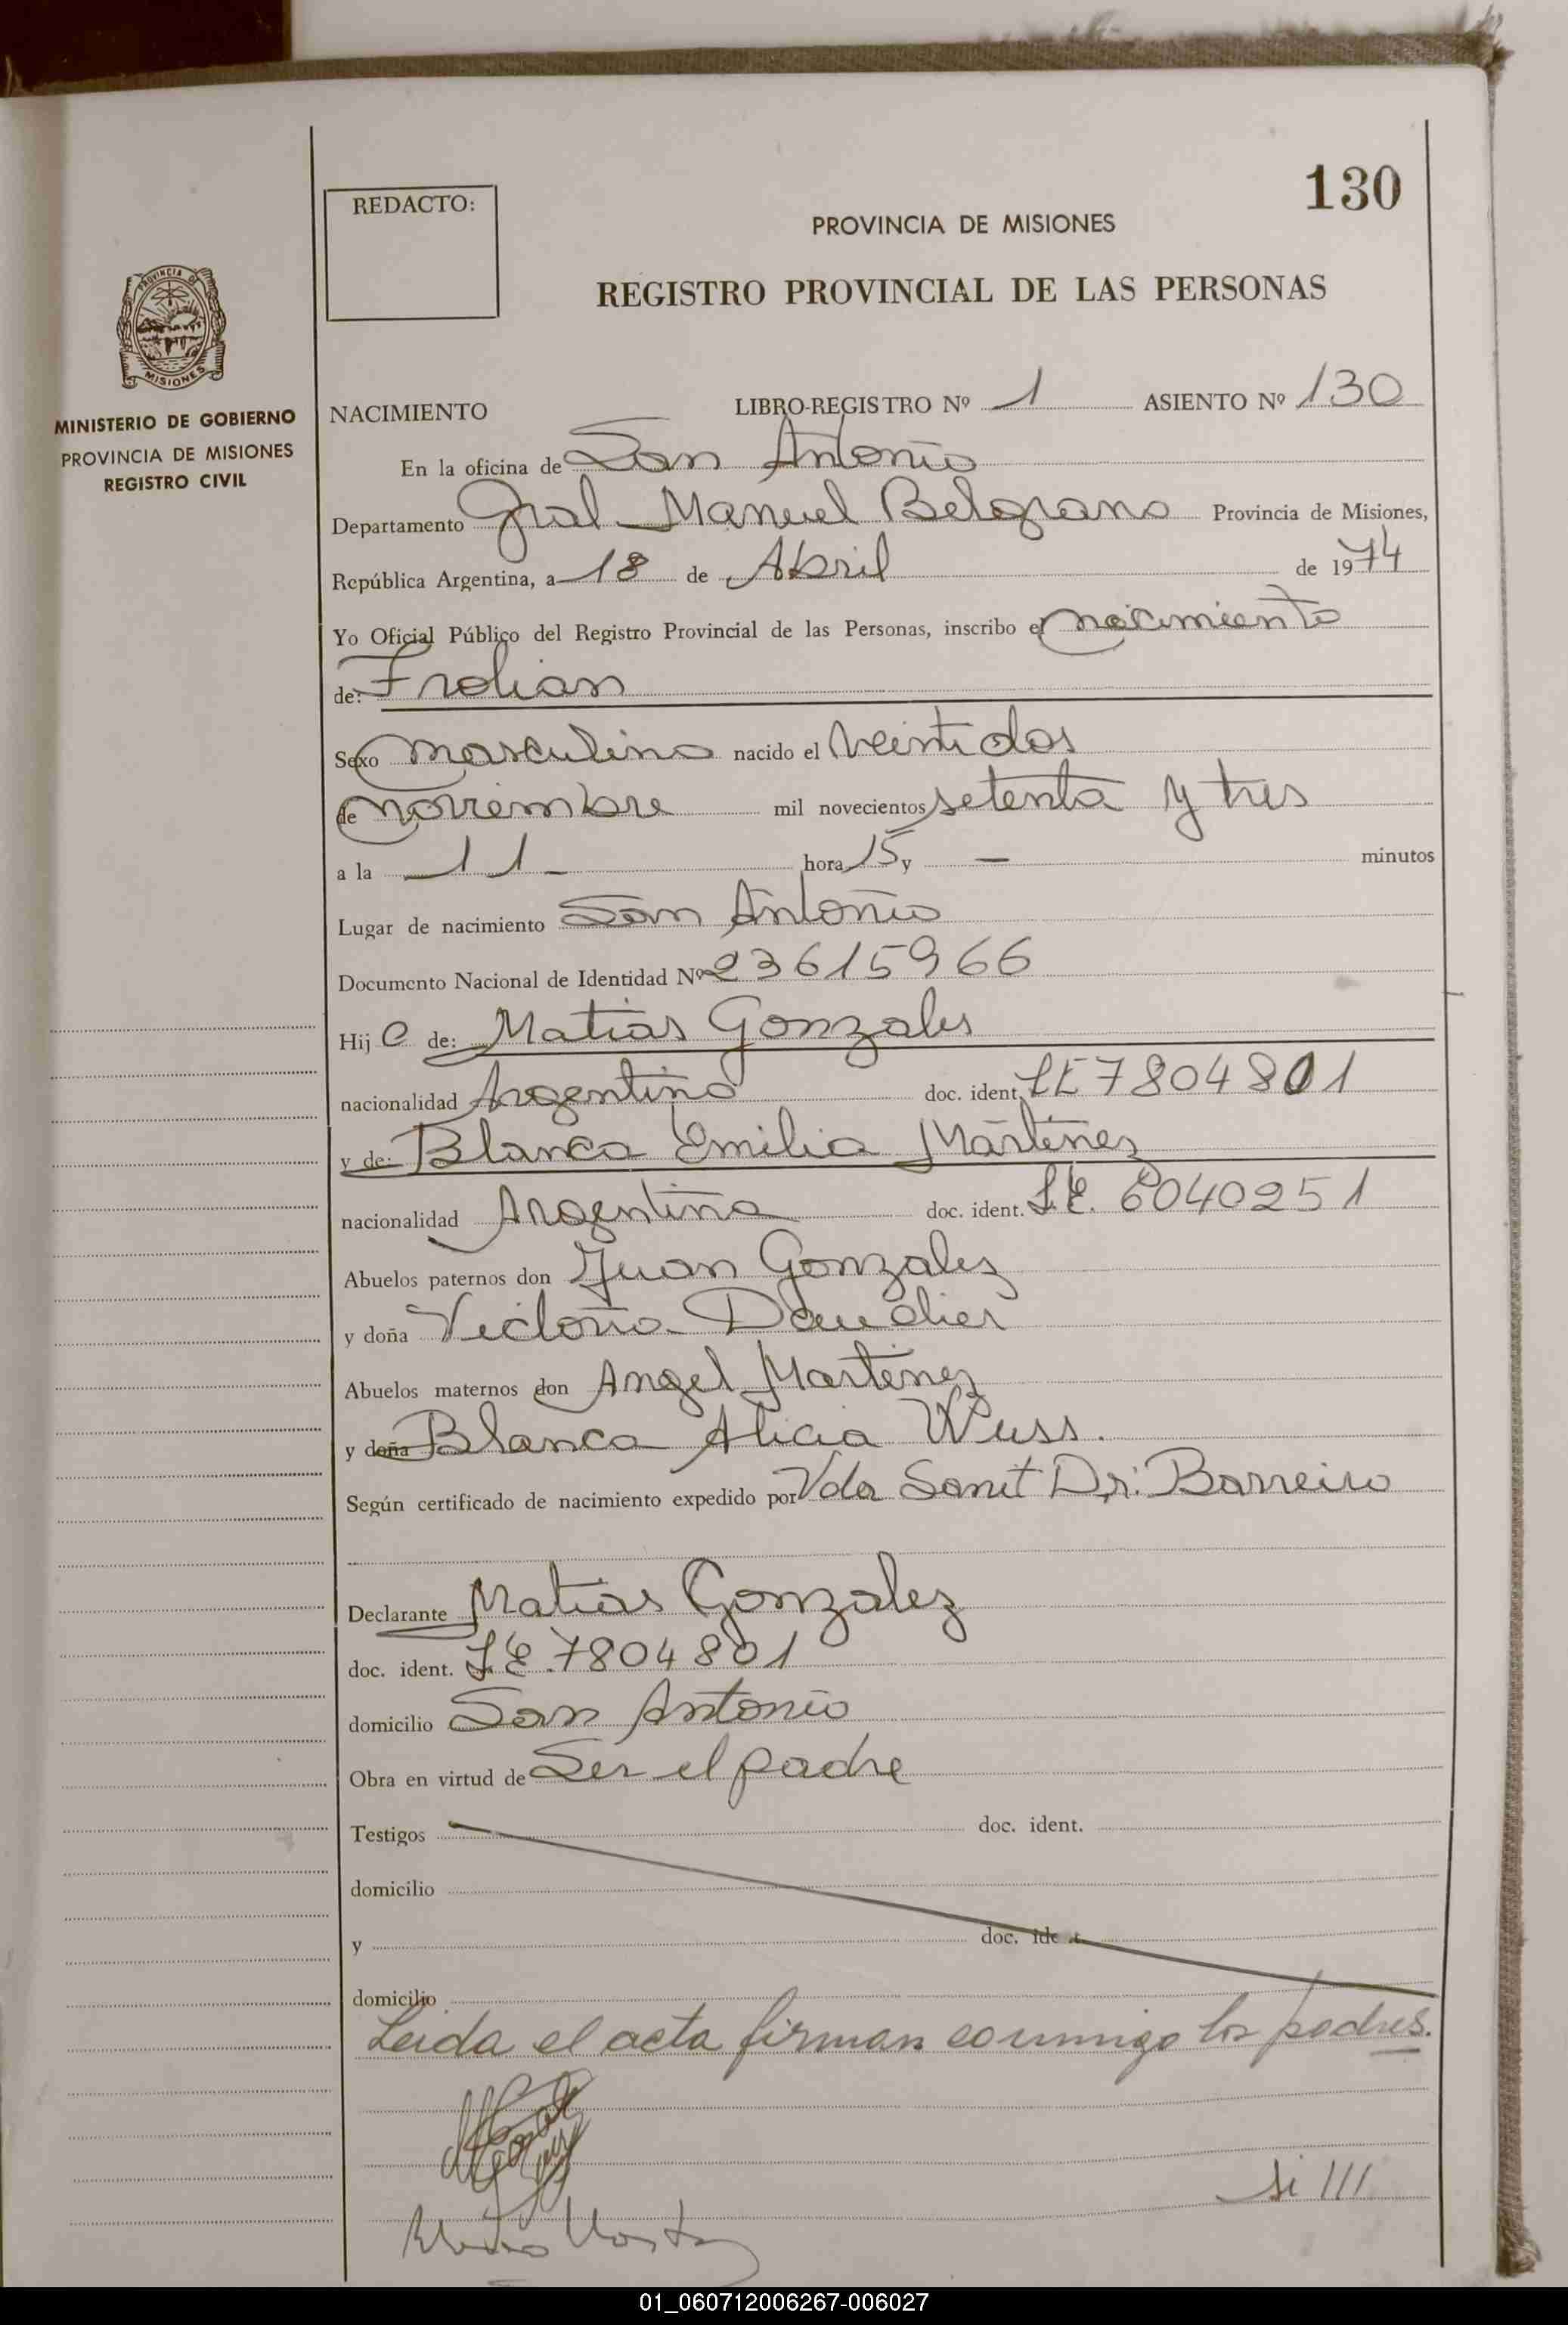 130
REDACTO:
PROVINCIA DE MISIONES
REGISTRO PROVINCIAL DE LAS PERSONAS
PROVINCIA DE
MISIONES
MINISTERIO DE GOBIERNO
PROVINCIA DE MISIONES
REGISTRO CIVIL
NACIMIENTO LIBRO-REGISTRO Nº 1 ASIENTO Nº 130
En la oficina de San Antonio
Departamento Gral Manuel Belgrano Provincia de Misiones,
República Argentina, a 18 de Abril de 1974
Yo Oficial Público del Registro Provincial de las Personas, inscribo el nacimiento
de: Frolian
Sexo masculino nacido el veintidos
de noviembre mil novecientos setenta y tres
a la 11 hora 15 y — minutos
Lugar de nacimiento San Antonio
Documento Nacional de Identidad Nº 23615966
Hij o de: Matias Gonzales
nacionalidad Argentino doc. ident. LE 7804801
y de: Blanca Emilia Martinez
nacionalidad Argentina doc. ident. L.E. 6040251
Abuelos paternos don Juan Gonzalez
y doña Victoria
Abuelos maternos don Angel Martinez
y doña Blanca Alicia Wuss.
Según certificado de nacimiento expedido por Vda Sanit Dr: Barreiro
Declarante Matias Gonzalez
doc. ident. L.E. 7804801
domicilio San Antonio
Obra en virtud de Ser el padre
Testigos doc. ident.
domicilio
y doc. ide t.
domicilio
Leida el acta firman conmigo los padres.
si III
01_060712006267-006027